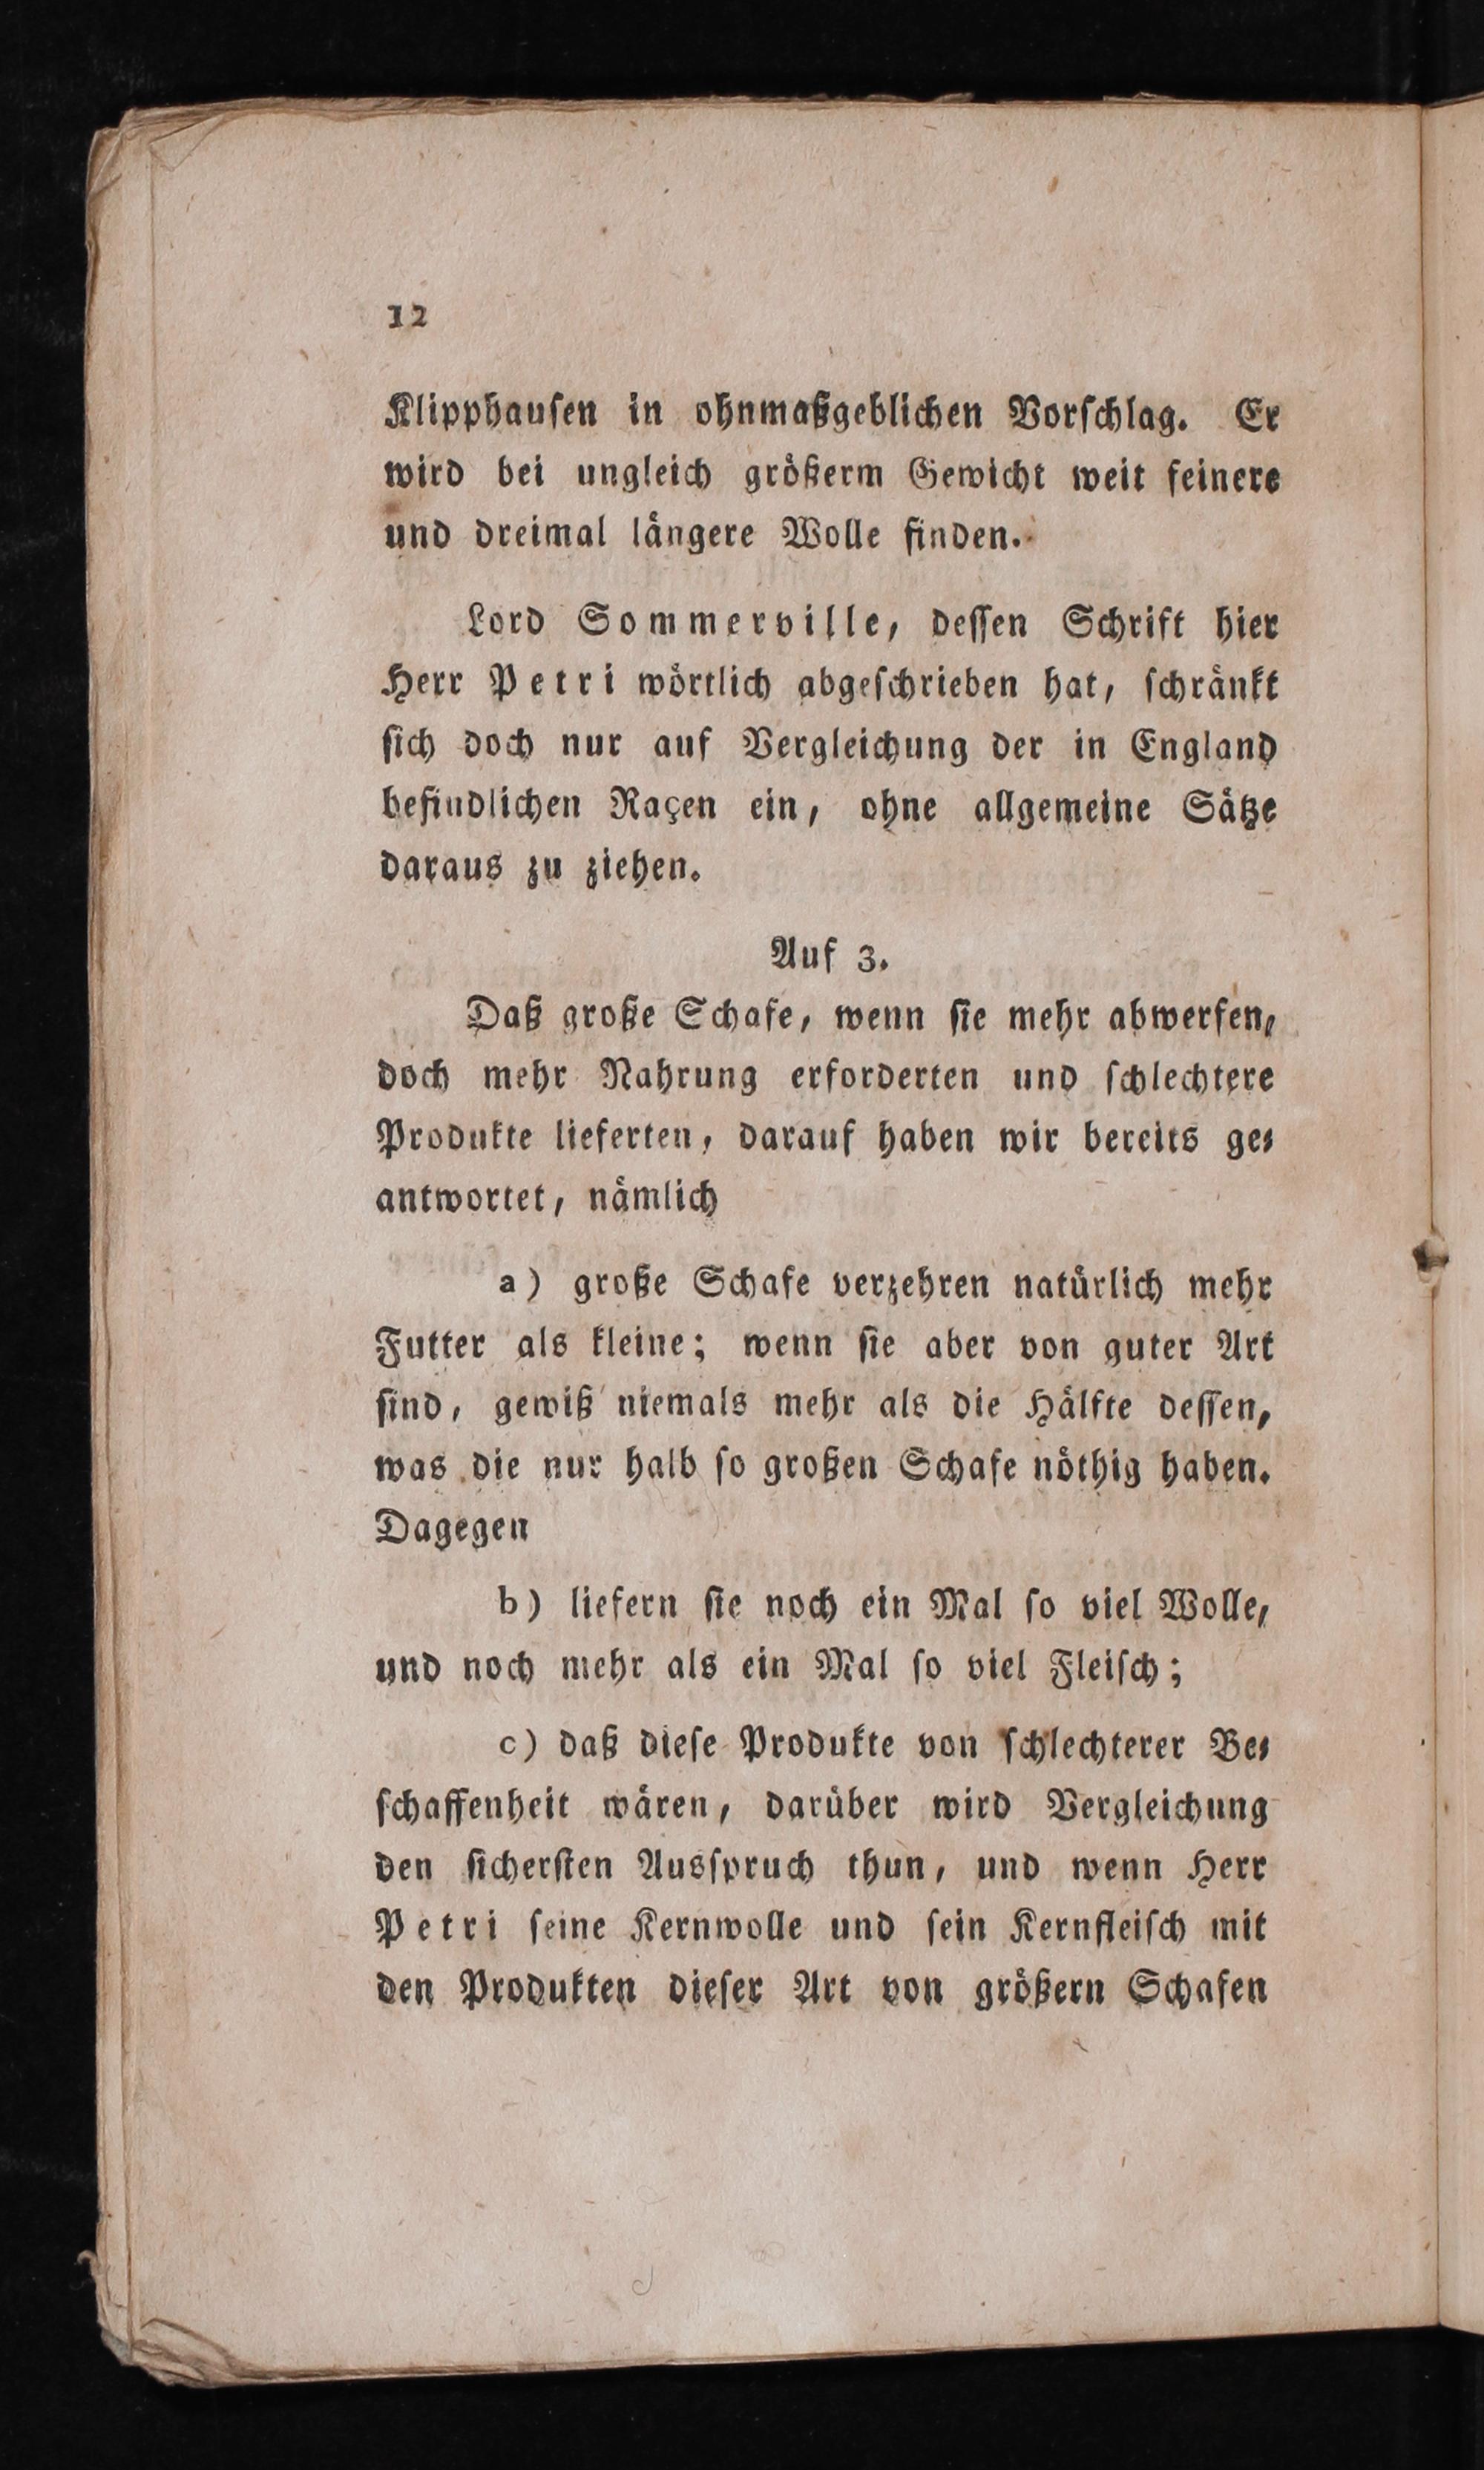 12
Klipphauſen in ohnmaßgeblichen Vorſchlag. Er
wird bei ungleich größerm Gewicht weit feinere
und dreimal längere Wolle finden.
Lord Sommerville, deſſen Schrift hier
Herr Petri wörtlich abgeſchrieben hat, ſchränkt
ſich doch nur auf Vergleichung der in England
befindlichen Raçen ein, ohne allgemeine Sätze
daraus zu ziehen.
Auf 3.
Daß große Schafe, wenn ſie mehr abwerfen,
doch mehr Nahrung erforderten und ſchlechtere
Produkte lieferten, darauf haben wir bereits ge⸗
antwortet, nämlich
a) große Schafe verzehren natürlich mehr
Futter als kleine; wenn ſie aber von guter Art
ſind, gewiß niemals mehr als die Hälfte deſſen,
was die nur halb ſo großen Schafe nöthig haben.
Dagegen
b) liefern ſie noch ein Mal ſo viel Wolle,
und noch mehr als ein Mal ſo viel Fleiſch;
c) daß dieſe Produkte von ſchlechterer Be⸗
ſchaffenheit wären, darüber wird Vergleichung
den ſicherſten Ausſpruch thun, und wenn Herr
Petri ſeine Kernwolle und ſein Kernfleiſch mit
den Produkten dieſer Art von größern Schafen